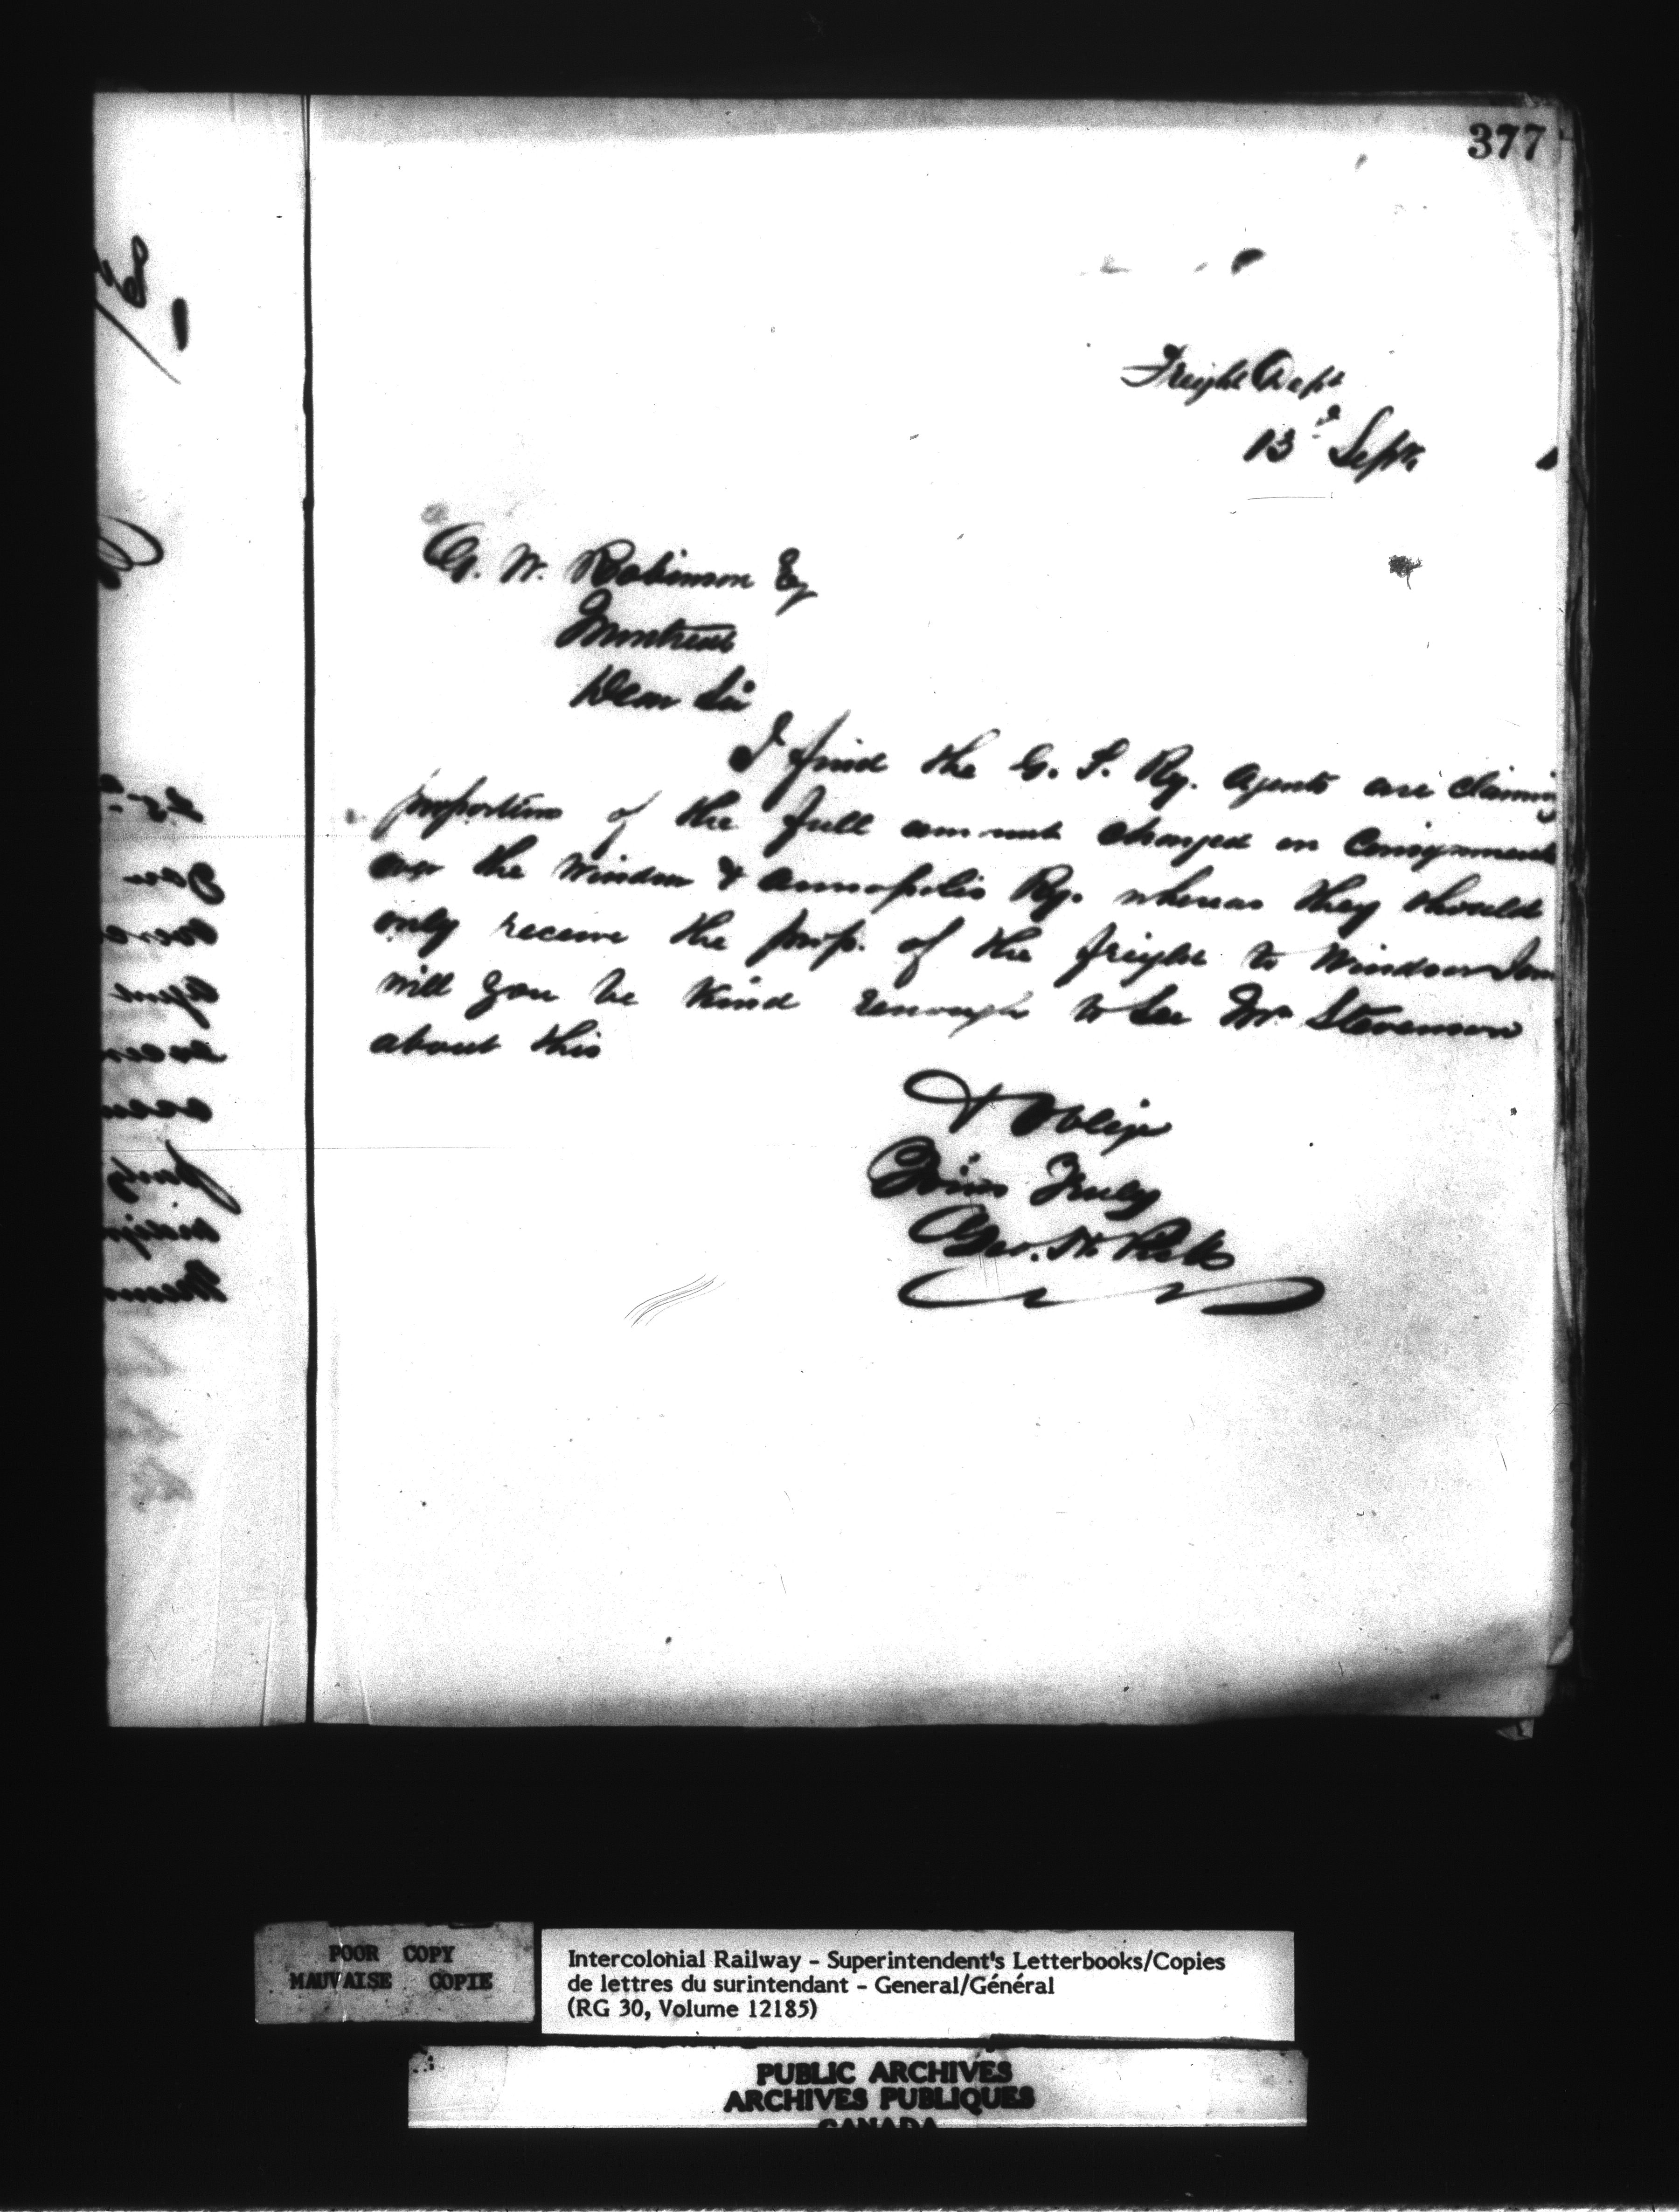 377
Freight Dept
13th Sept.
G. W. Robinson Esq
Montreal
Dear Sir
I find the G. T. Ry. Agents are claiming
proportion of the full amount charged on Consignments
over the Windsor & Annapolis Ry. whereas they should
only receive the prop. of the freight to Windsor Jun
will you be kind enough to see Mr Stevenson
about this
& Oblige
Yours Truly
Geo.
POOR COPY
MAUVAISE COPIE
Intercolonial Railway - Superintendent's Letterbooks/Copies
de lettres du surintendant - General/Général
(RG 30, Volume 12185)
PUBLIC ARCHIVES
ARCHIVES PUBLIQUES
CANADA